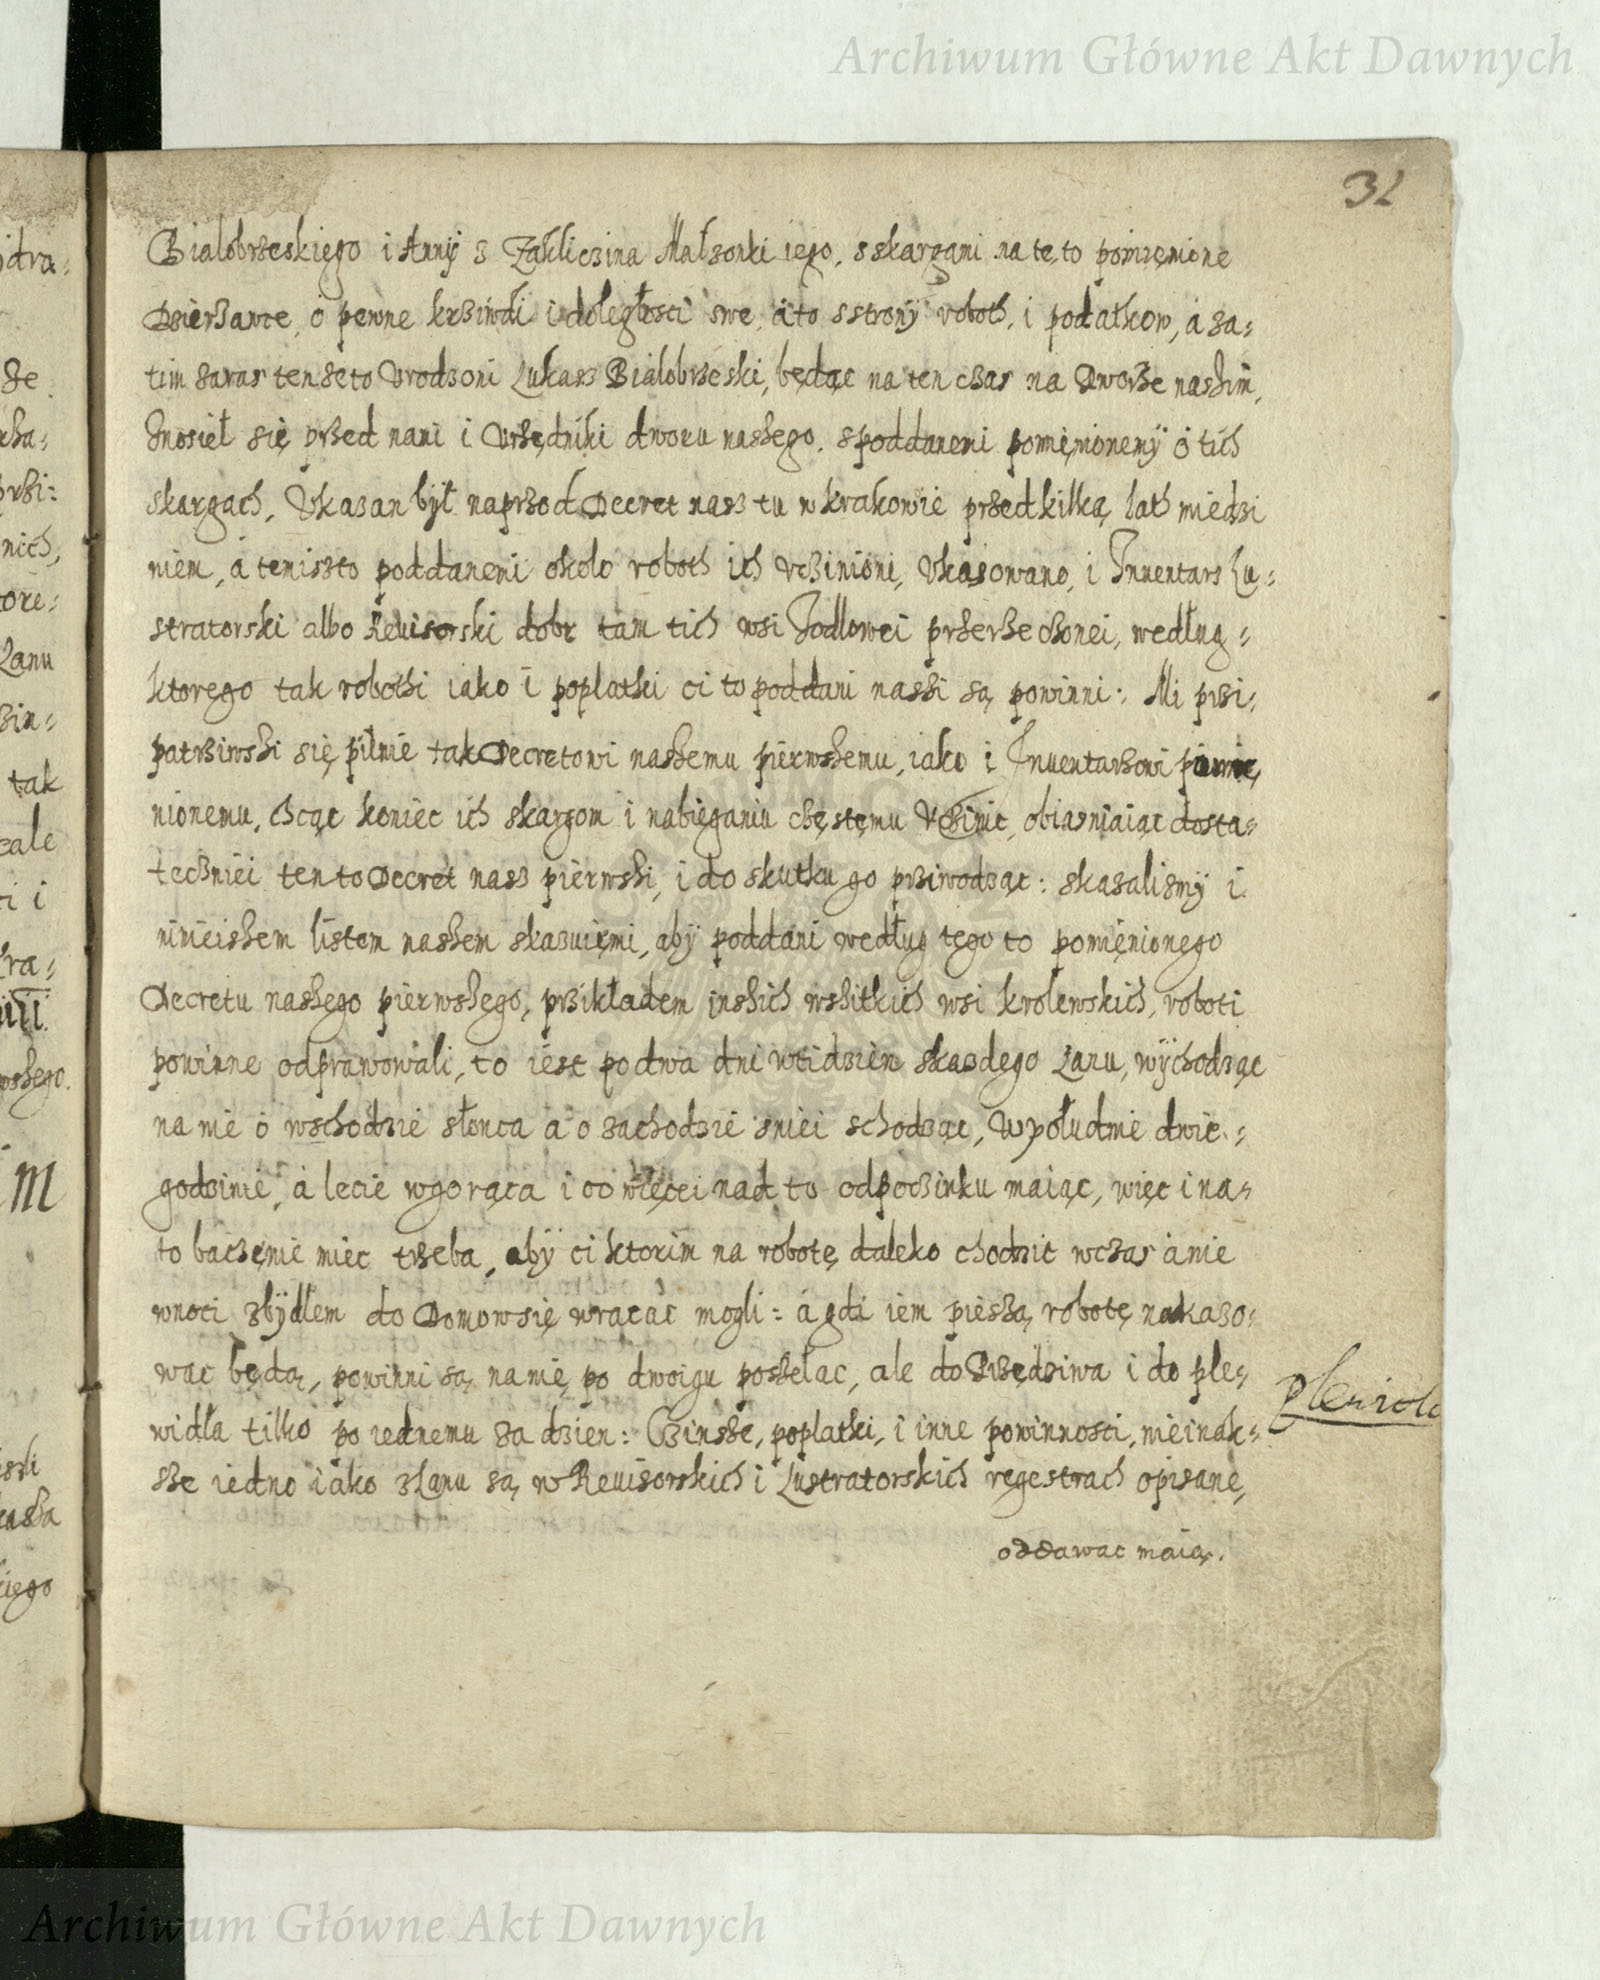 Archiwum Główne Akt Dawnych
32
Bialobrzeskiego i Annÿ z Zakliczina Malzonki iego, s skargami na te to pomienione
Dzierzawce, o pewne krziwdi i doległosci swe, a to s stronÿ roboth, i podatkow, a za=
tim zaraz ten ze to Vrodzoni Lukasz Bialobrzeski, będąc na ten czas na Dworze naszim,
Znosieł się przed nami i Vrzędniki dworu naszego, s poddanemi pomięnionemÿ o tich
skargach, Vkazan bÿł naprzod Decret nasz tu w krakowie przed kilką lath miedzi
niem, a temiszto poddanemi okolo roboth ich vczinioni, Vkazowano, i Inuentarz Lu=
stratorski albo Reuisorski dobr tam tich wsi Jodlowei przerzeczonei, według=
ktorego tak robothi iako i poplatki ci to poddani naszi są powinni: Mi przi=
patrziwszi się pilnie tak Decretowi naszemu pierwszemu, iako i Inuentarzowi pomię
nionemu, chcąc koniec ich skargom i nabięganiu częstęmu Vczinic, obiasniaiąc dosta=
teczniei ten to Decret nasz pierwszi, i do skutku go prziwodząc: skazalismÿ i
ninieiszem listem naszem skazuięmi, abÿ poddani według tego to pomięnionego
Decretu naszego pierwszego, przikładem inszich wszitkich wsi krolewskich, roboti
powinne odprawowali, to iest po dwa dni wtidzien skazdego Lanu, wÿchodząc
na nie o wschodzie słonca a o zachodzie zniei schodząc, W południe dwie=
godzinie, a lecie wgorąca i co więcei nad to odpoczinku maiąc, więc i na=
to baczęnie miec trzeba, abÿ ci ktorim na robotę daleko chodzic wczas a nie
wnoci zbÿdlem do Domow się wracac mogli: a gdi iem pieszą robotę nakazo=
wac będą, powinni są na nię po dwoigu poszełac, ale do Przędziwa i do ple=
widła tilko po iednemu za dzien: Czinsze, poplatki, i inne powinnosci, nieinak=
sze iedno iako z Lanu są w Reuisorskich i Lustratorskich regestrach opisane,
oddawac maią.
Archiwum Główne Akt Dawnych